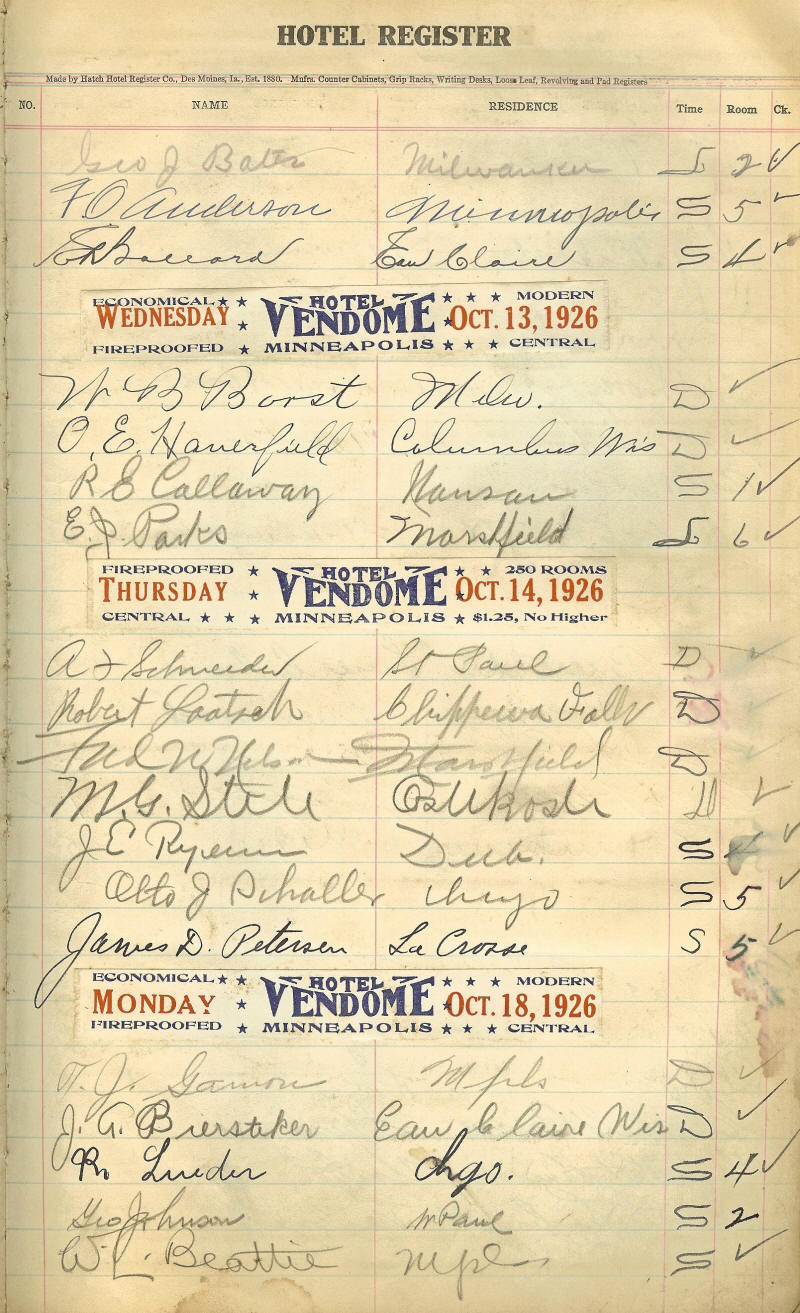 HOTEL REGISTER
Made by Hatch Hotel Register Co., Des Moines, Ia., Est. 1880. Mnfrs. Counter Cabinets, Grip Racks, Writing Desks, Loose Leaf, Revolving and Pad Registers
NO. NAME RESIDENCE Time Room Ck.
Geo J Milwaukee 2 ✓
F O Anderson Minneapolis S 5 ✓
Eau Claire S 4 ✓
ECONOMICAL ★ ★ HOTEL ★ ★ ★ MODERN
WEDNESDAY ★ VENDOME ★ OCT. 13, 1926
FIREPROOFED ★ MINNEAPOLIS ★ ★ ★ CENTRAL
W B Borst Milw. D ✓
O. E. Haverfield Columbus Wis D ✓
R E Callaway S 1 ✓
E. J. Parks Marshfield 6 ✓
FIREPROOFED ★ HOTEL ★ ★ 250 ROOMS
THURSDAY ★ VENDOME ★ OCT. 14, 1926
CENTRAL ★ ★ ★ MINNEAPOLIS ★ $1.25, No Higher
A J Schneider St Paul D ✓
Robert Chippewa Falls D
Nelson Marshfield D
M. G. Oshkosh D ✓
J E Dub. S 4 ✓
Otto J Schaller Chgo S 5 ✓
James D. Petersen La Crosse S 5 ✓
ECONOMICAL ★ ★ HOTEL ★ ★ ★ MODERN
MONDAY ★ VENDOME ★ OCT. 18, 1926
FIREPROOFED ★ MINNEAPOLIS ★ ★ ★ CENTRAL
T. J. Gamon Mpls D ✓
J. G. Biersteker Eau Claire Wis D ✓
R. Lueder Chgo. S 4 ✓
Geo Johnson Paul S 2
W L. Beattie Mpls S ✓